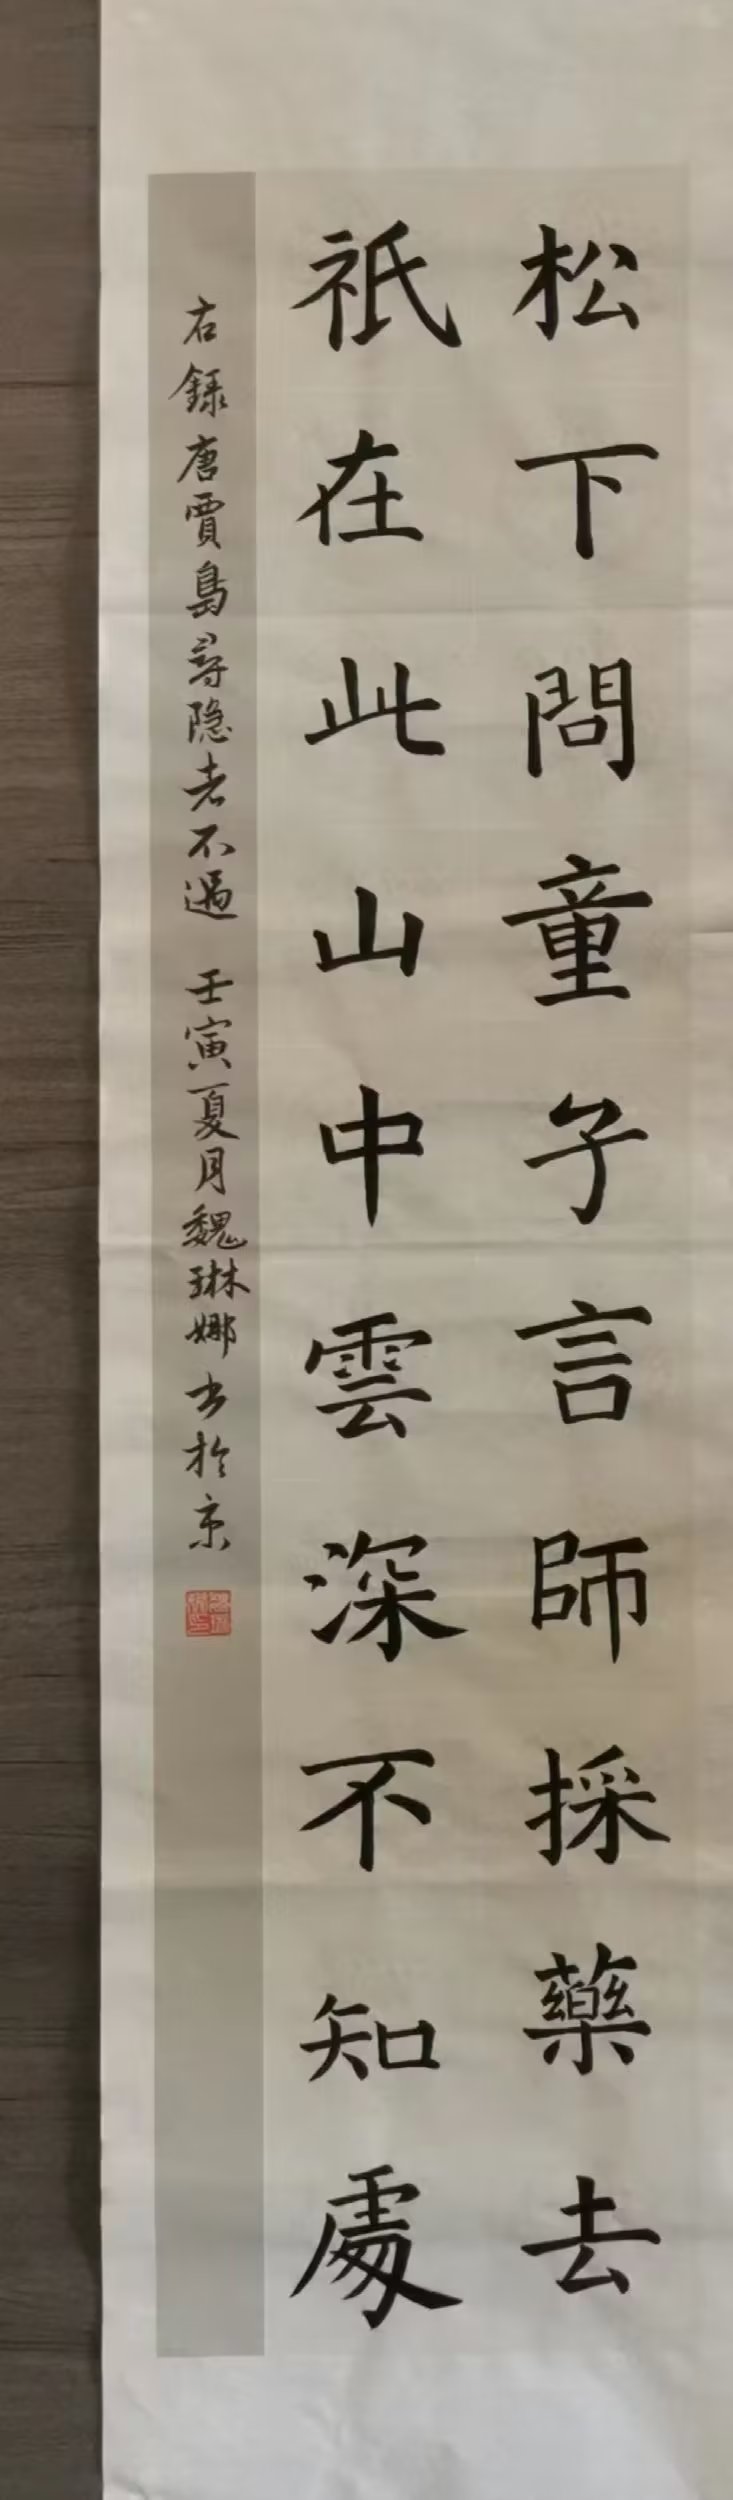 松下問童子言師採藥去
祇在此山中雲深不知處
右録唐賈島尋隐者不遇 壬寅夏月魏琳娜书於京